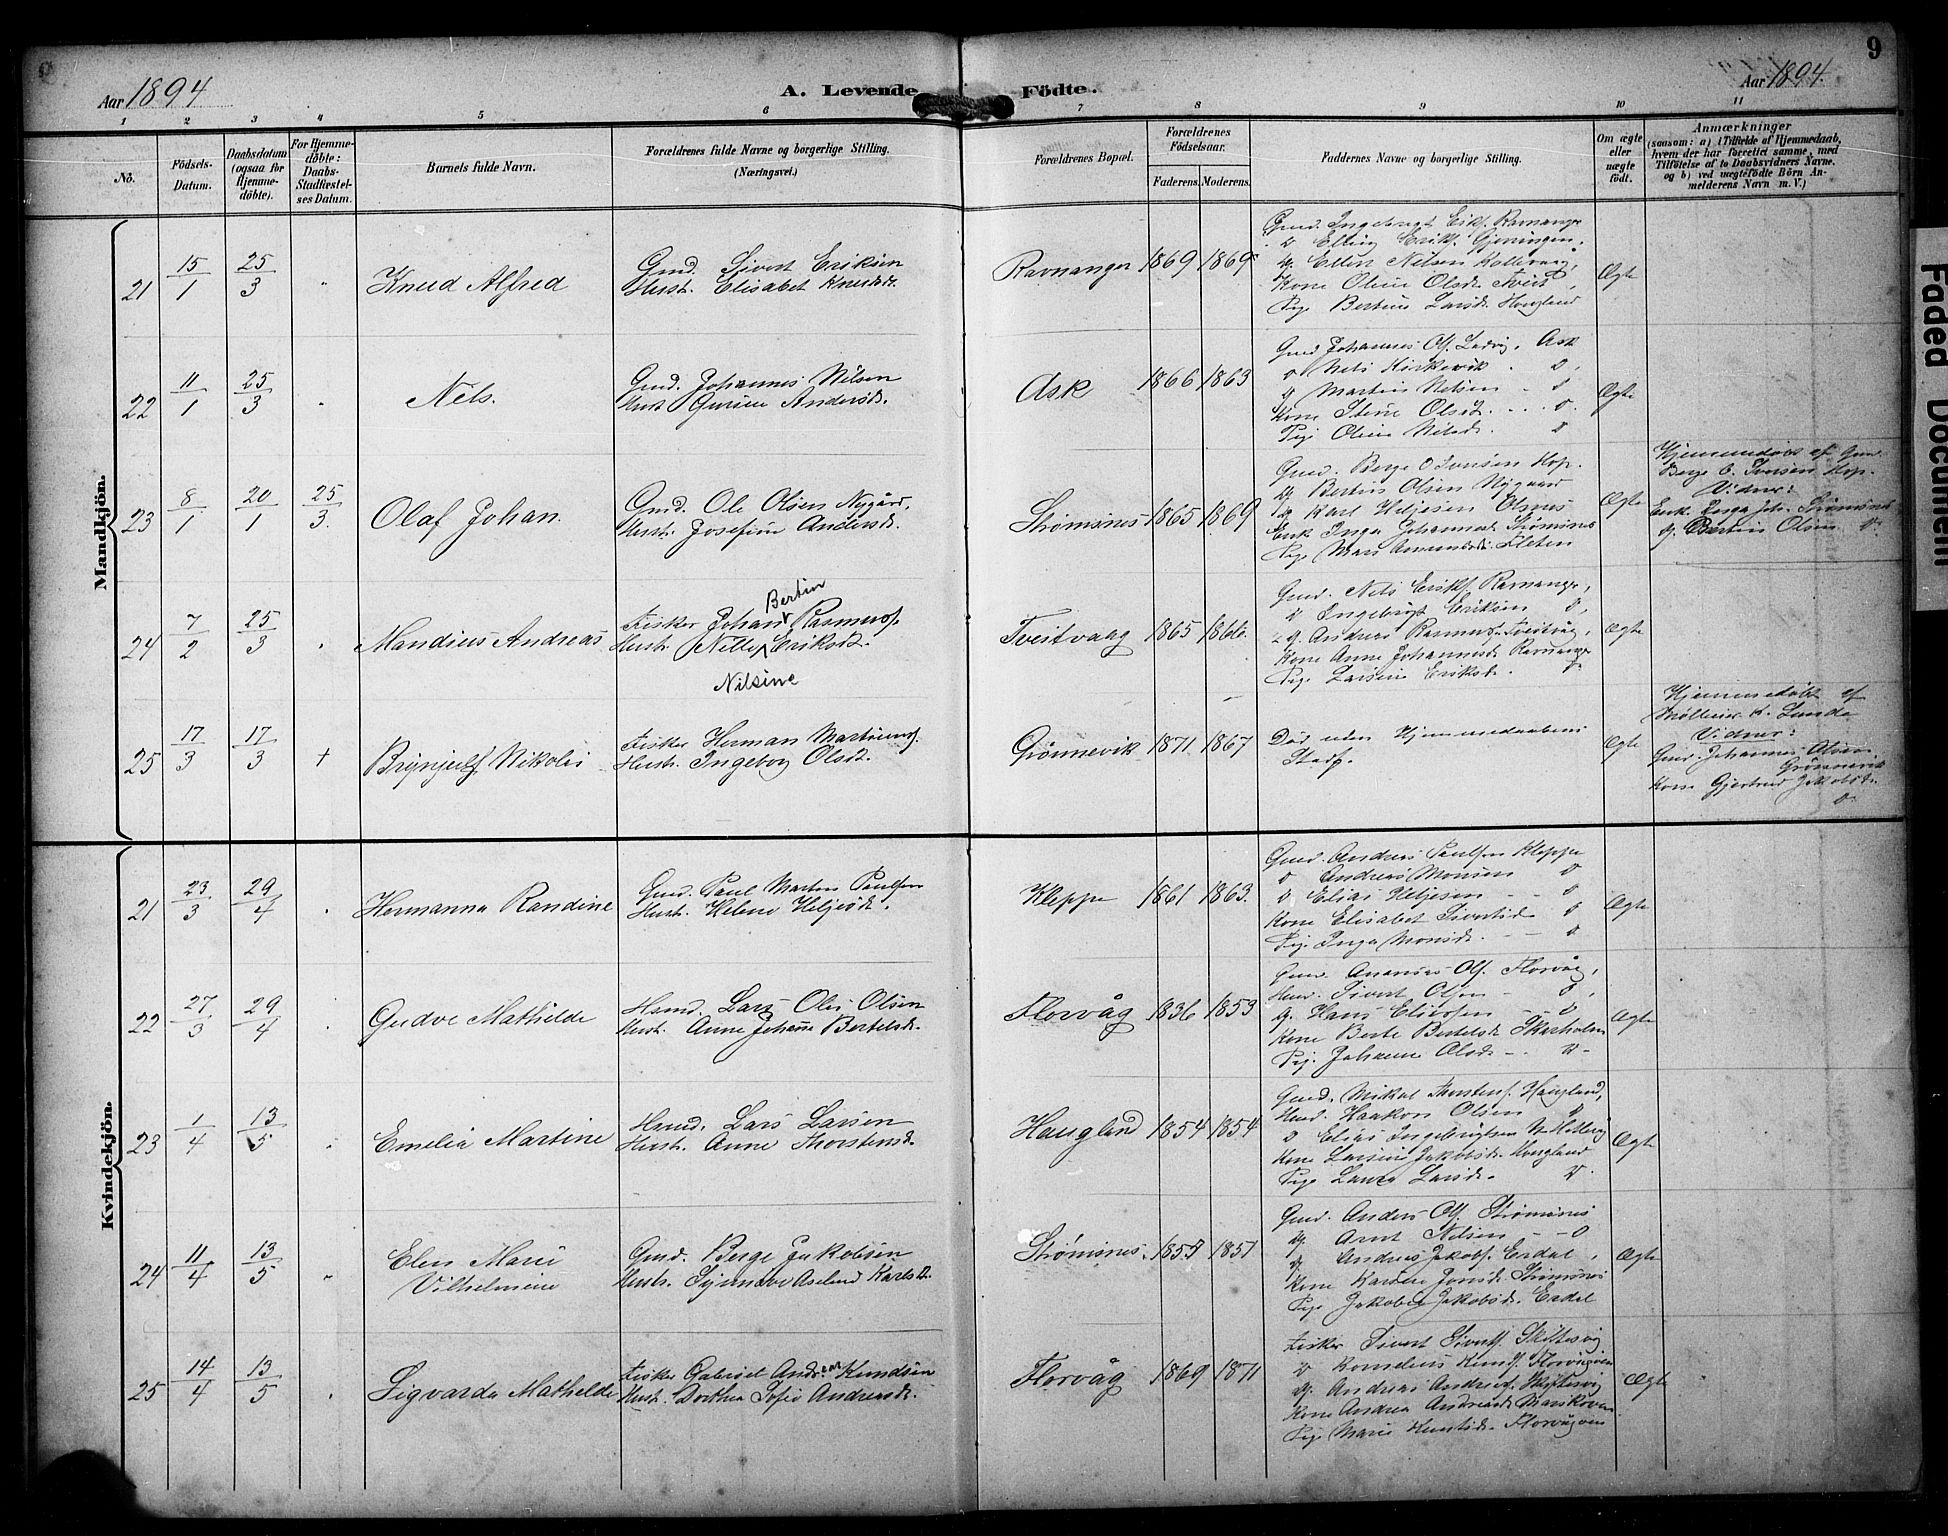 9
Aar 1894
A. Levende Födte.
Aar 1894.
1 2 3 4 5 6 7 8 9 10 11
No.
Födsels-Datum.
Daabsdatum (ogsaa for Hjemme-döbte).
For Hjemme-döbte: Daabs-Stadfæstel-ses Datum.
Barnets fulde Navn.
Forældrenes fulde Navne og borgerlige Stilling.
(Næringsvei.)
Forældrenes Bopæl.
Forældrenes Födselsaar.
Faderens. Moderens.
Faddernes Navne og borgerlige Stilling.
Om ægte eller uægte födt.
Anmærkninger
(saasom: a) i Tilfælde af Hjemmedaab,
hvem der har forrettet samme, med
Tilföielse af to Daabsvidners Navne.
og b) ved uægtefödte Börn An-
melderens Navn m. V.)
Mandkjön.
21 15/1 25/3 " Knud Alfred
Gmd. Sivert Eriksen
Hustr. Elisabet Knutsdt.
Ravnanger 1869 1869
Gmd. Ingebrigt Erikf. Ravnanger
Elling Erikf.
Kone Oline Olsdt. Tveit
Pige Bertine Larsdt. Hougland
Ægte
22 11/1 25/3 " Nels.
Gmd. Johannes Nilsen
Hust. Gurine Andersdt.
Ask 1866 1863
Gmd Johannes Olf. Ask
Martin Nelsen
Kone Stine Olsdt.
Pige Oline Nilsdt.
Ægte
23 8/1 20/1 25/3. Olaf Johan.
Gmd. Ole Olsen Nygård,
Hustr. Josefine Andersdt.
Strømsnes 1865 1869
Gmd. Berge O Ivarsen Hop.
Bertin Olsen Nygaard
Karl Heljesen Olsnes
Enk. Inga Johannesdt. Strømsnes
Ægte
Hjemmedøbt af Gmd.
Berge O. Hop.
Vidner:
Enk. Inga Joh. Strømsnes
Bertin Olsen do.
24 7/2 25/3 " Mandius Andreas
Bertin
Fisker Johan Rasmusf.
Hustr. Nille Eriksdt.
Nilsine
Tveitvaag 1865 1866.
Gmd. Nels Erikf. Ravnanger,
Ingebrigt Eriksen
Andreas Rasmusf. Tveitvåg,
Kone Anne Johannesdt. Ravnanger
Pige Larsine Eriksdt.
Ægte
25 17/3 17/3 + Brynjulf Nikolai
Fisker Herman Martinusf.
Hustr. Ingeborg Olsdt.
Grönnevik 1871 1867
Död uden Hjemmedaabens
Stadf.
Ægte
Hjemmedøbt af
K. Lunde
Vidner:
Gmd. Johannes Olsen
Grönnevik
Kone Gjertrud Jakobsdt.
do.
Kvindekjön.
21 23/3 29/4 " Hermanna Randine
Gmd. Paul Martin Paulsen
Hustr. Helene Heljesdt.
Kleppe 1861 1863.
Gmd. Andreas Paulsen Kleppe
Andreas Monsen
Elias Heljesen
Kone Elisabet Sivertsdt.
Pig. Inga Monsdt.
Ægte
22 27/3 29/4 " Gudve Mathilde
Hsmd. Lars Olai Olsen
Hust. Anne Johanne Bertelsdt.
Florvåg 1836 1853
Gmd. Ananias Olf. Florvåg,
Hmd. Sivert Olsen
Hans
Kone Berte Bertelsdt. Skarholm
Pig. Johanne Olsdt.
Ægte
23 1/4 13/5 " Emelia Martine
Hsmd. Lars Larsen
Hustr. Anne Thorstensdt.
Haugland 1854 1854
Gmd. Mikal Thorstenf. Haugland,
Hmd. Haakon Olsen
Elias Ingebrigtsen
Kone Larsine Jakobsdt. Hougland
Pige Laura Larsdt.
Ægte
24 11/4 13/5 " Elen Marie
Vilhelmine
Gmd. Berge Jakobsen
Hustr. Synneve Aselend Karlsdt.
Strømsnes. 1855 1857
Gmd. Anders Olf. Strømsnes
Arnt Nilsen
Andreas Jakobf. Erdal
Kone Karine Jonsdt. Strømsnes
Pige Jakobine Jakobsdt. Erdal
Ægte
25 14/4 13/5 " Sigvarda Mathilde
Fisker Gabriel Andreas Knudsen
Hustr. Dorthea Sofie Andreasdt.
Florvåg 1869 1871
Fisker Sivert Sivertf. Skiftesvig
Kornelius Knudf. Florvågøen
Andreas Andreasf. Skiftesvig
Kone Andrea Andreasdt.
Pige Marie Knutsdt. Florvågøen
Ægte
Faded Document